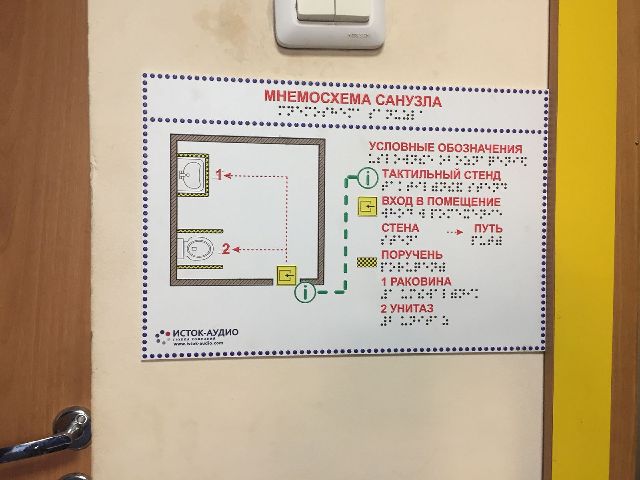 МНЕМОСХЕМА САНУЗЛА
УСЛОВНЫЕ ОБОЗНАЧЕНИЯ
i ТАКТИЛЬНЫЙ СТЕНД
ВХОД В ПОМЕЩЕНИЕ
СТЕНА ПУТЬ
ПОРУЧЕНЬ
1 РАКОВИНА
2 УНИТАЗ
1
2
i
ИСТОК-АУДИО
ГРУППА КОМПАНИЙ
www.istok-audio.com